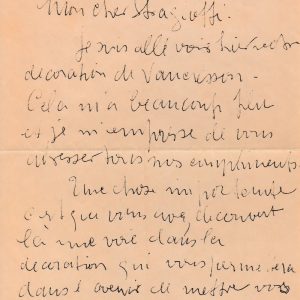 Mon cher Stragioffi.
Je suis allé voir hier votre
décoration de Vaucresson.
Cela m'a beaucoup plu
et je m'empresse de vous
adresser tous mes compliments
Une chose
c'est que vous avez découvert
là une voie dans la
décoration qui vous permettra
dans l'avenir de mettre vos